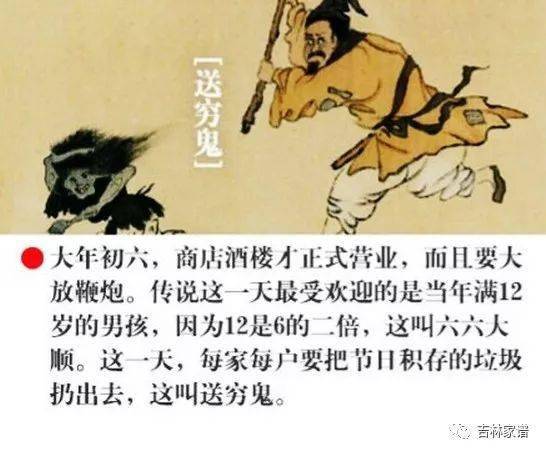 [送穷鬼]
大年初六，商店酒楼才正式营业，而且要大
放鞭炮。传说这一天最受欢迎的是当年满12
岁的男孩，因为12是6的二倍，这叫六六大
顺。这一天，每家每户要把节日积存的垃圾
扔出去，这叫送穷鬼。
吉林家谱